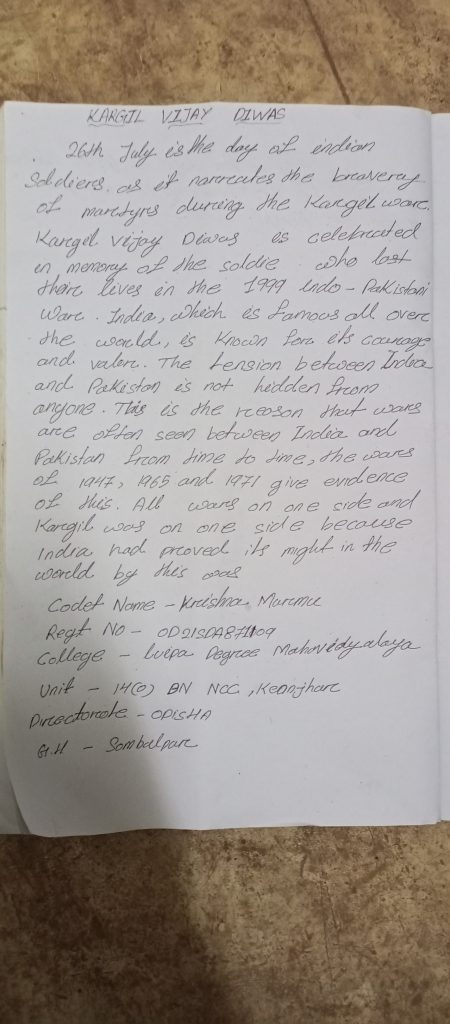 KARGIL VIJAY DIWAS
26th July is the day of indian
Soldiers. as it narreates the braverey
of maretyrs dureing the Karegil ware.
Karegil Vijay Diwas is celebreated
in memory of the soldie who lost
there lives in the 1999 indo-Pakistani
Ware. India, which is famous all overe
the world, is Known fore its courage
and valore. The tension between India
and Pakistan is not hidden from
anyone. This is the reeason that wars
are often seen between India and
Pakistan from time to time, the wars
of 1947, 1965 and 1971 give evidence
of this. All wars on one side and
Karegil was on one side because
India had preoved its might in the
world by this was
Codet Name - Krishna Mureme
Regt No - OD21SDA871109
College - Degree Mahavidyalaya
Unit - 14(O) BN NCC, Keonjhare
Directorate - ODISHA
G.H - Sambalpure